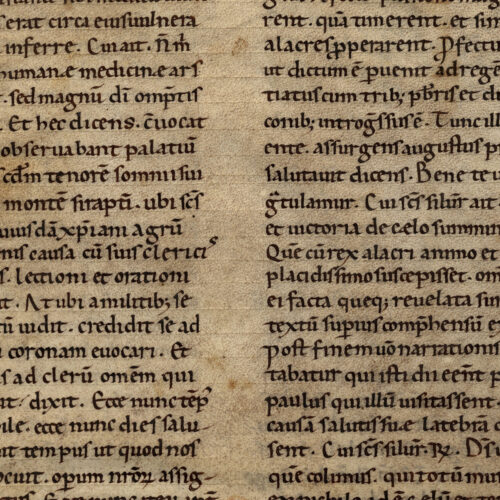 serat circa eius uulnera
inferre. Cui ait. n̄m̄
humanę medicinę ars
. sed magnū dī omp̄tis
. Et hec dicens. c̄uocat
obseruabant palatiū
scd̄m tenorē somnii sui
montē sirapti. ubi sc̄s
uiusdā xp̄iani agrū
nis causa cū suis clerici᷒
s. lectioni et orationi
it. At ubi a militib; se
tū uidit. credidit se ad
coronam euocari. Et
s ad clerū omēm qui
it. dixit. Ecce nunc tēp᷒
ile. ecce nunc dies salu-
it tempus ut quod nos
ocuit. opum nr̄orū assig-
rent. quā timerent. et sim
alacres pperarent. Pfectus
ut dictum ē puenit ad regē
tiatus cum trib; pb̄ris et di
conib; introgssus ē. Tunc ill
ente. assurgens augustus p
salutauit dicens. Bene te u
gtulamur. Cui sc̄s siluṛ ait.
et uictoria de cęlo summin
Que cū rex alacri animo et
placidissimo suscepisset. om
ei facta queq; reuelata sun
textū supius comphensū e
Post finem uō narrationis
tabatur qui isti dii eēnt p
paulus qui illū uisitassent.
causā salutis suę latebrā d
sent. Cui sc̄s siluṛ. R̄. D̄s u
quē colimus. qui totū mu